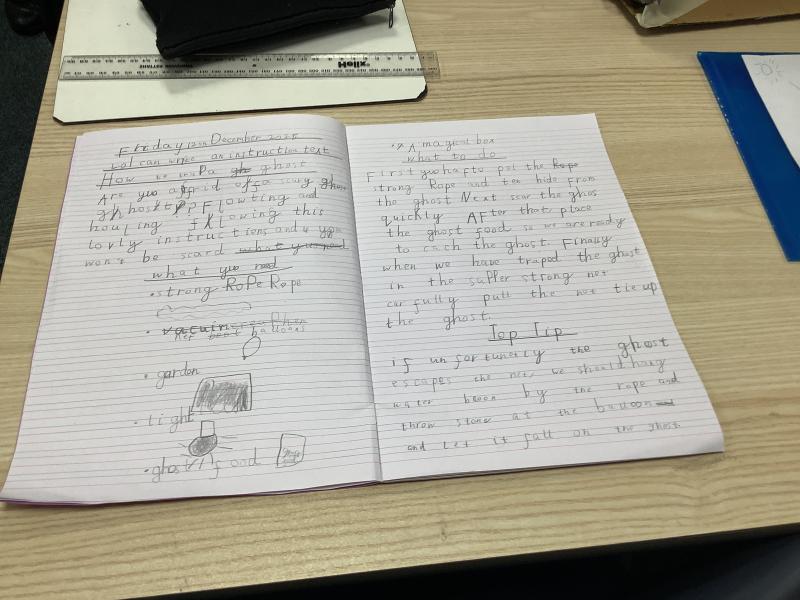 Friday 12th December 2025
LO I can write an instruction text
How to trap a ghost
Are you afrid of a scary ghost
ghost ? Flowting and
houling fllowing this
lovly instructions and you
won't be scard what you need
what you need
• strong RoPe Rope
• vacuum
net balloons
• garden
• light
• ghost food
• A magical box
what to do
First you hafto put the Rope
strong Rope and ten hide From
the ghost Next scar the ghos
quickly AFter that place
the ghost food so we are ready
to cach the ghost. Finally
when we have traped the ghost
in the supper strong net
carfully pull the net tie up
the ghost.
Top Tip
if unfortunetly the ghost
escapes the net, we should hang
water bloon by the rope and
throw stone at the balloon
and let it fall on the ghost.
Helix